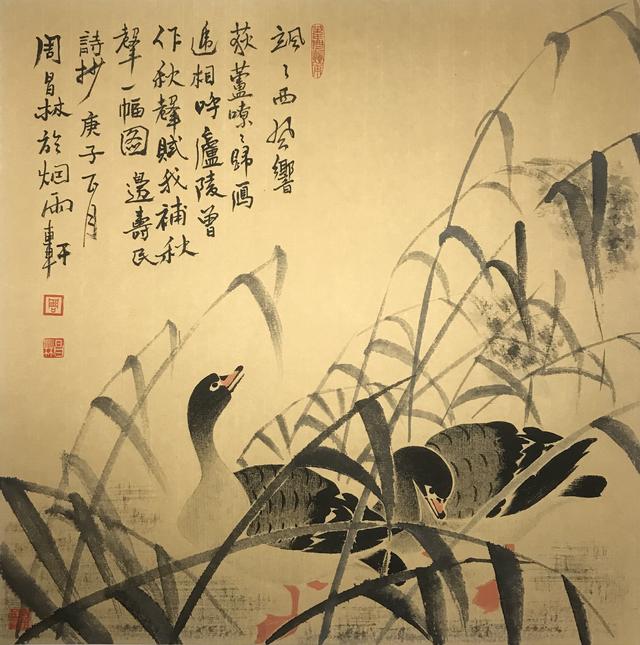 颯〻西風響
荻蘆嘹〻歸鴈
遞相呼廬陵曾
作秋聲賦我補秋
聲一幅圖 邊壽民
詩抄 庚子月
周昌林於烟雨軒
周
昌林